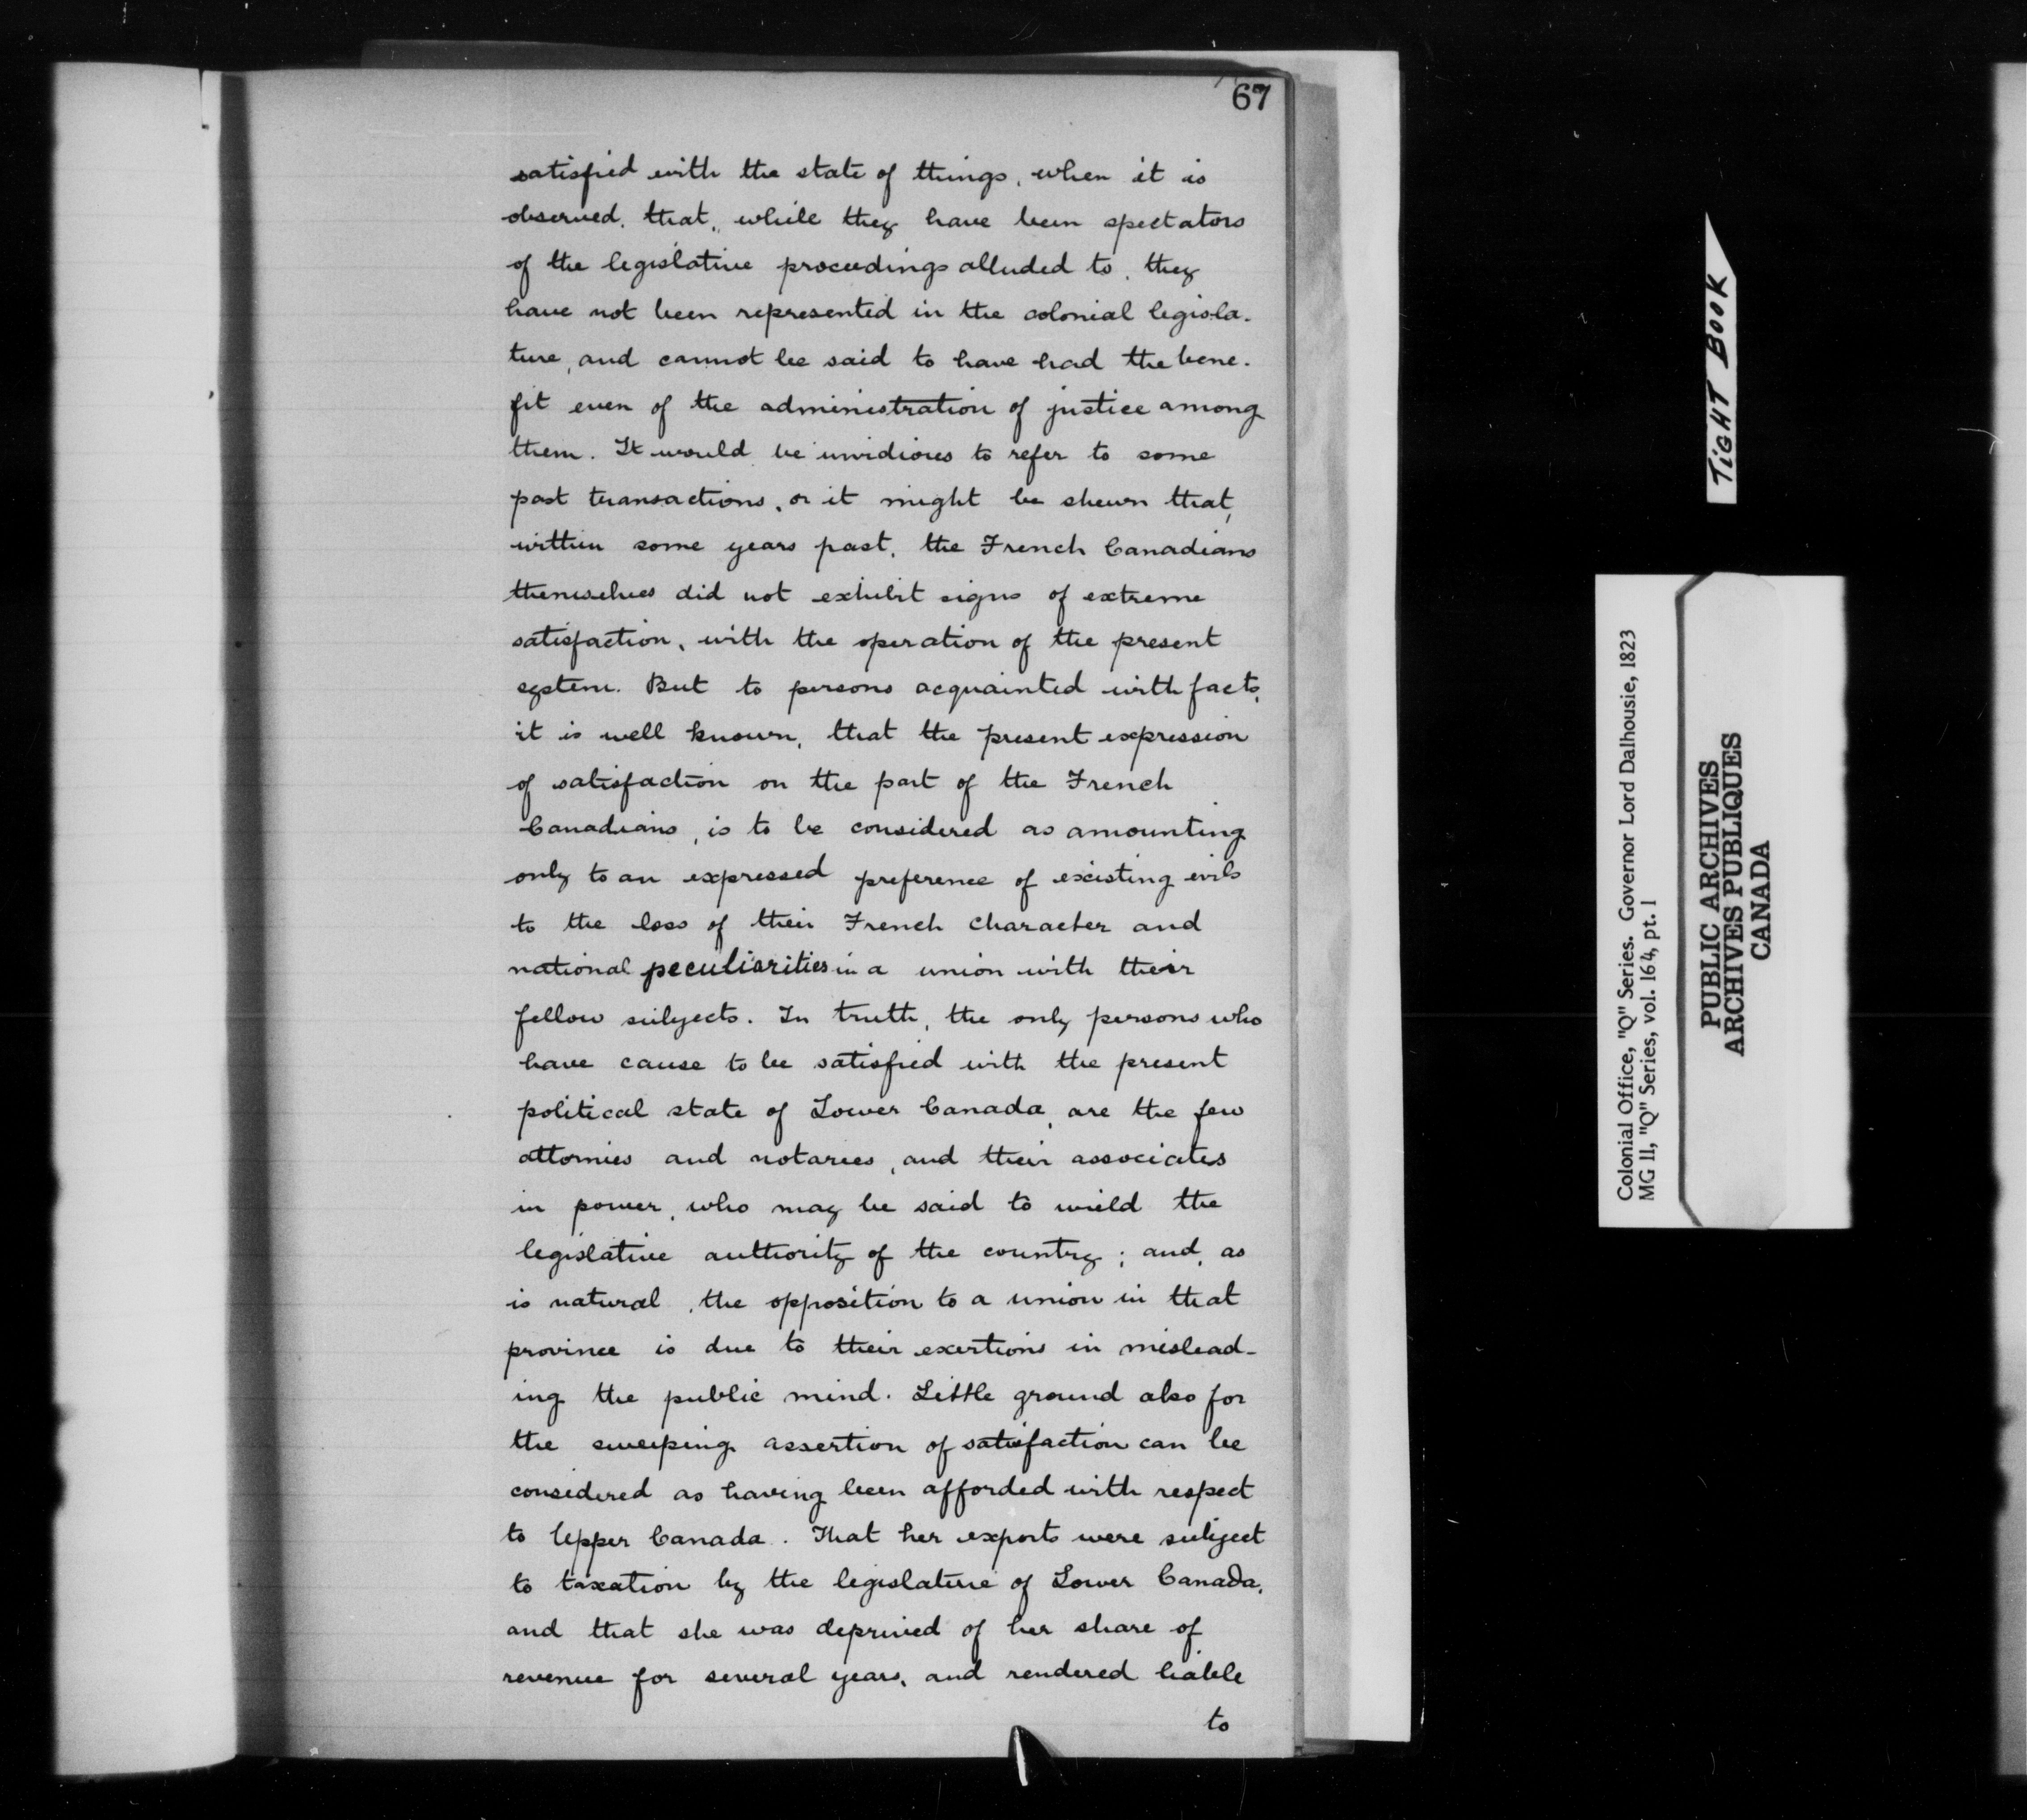 67
satisfied with the state of things, when it is
observed, that, while they have been spectators
of the legislative proceedings alluded to, they
have not been represented in the colonial legisla-
ture, and cannot be said to have had the bene-
fit even of the administration of justice among
them. It would be invidious to refer to some
past transactions, or it might be shewn that,
within some years past, the French Canadians
themselves did not exhibit signs of extreme
satisfaction, with the operation of the present
system. But to persons acquainted with facts,
it is well known, that the present expression
of satisfaction on the part of the French
Canadians, is to be considered as amounting
only to an expressed preference of existing evils
to the loss of their French character and
national peculiarities in a union with their
fellow subjects. In truth, the only persons who
have cause to be satisfied with the present
political state of Lower Canada, are the few
attornies and notaries, and their associates
in power, who may be said to wield the
legislative authority of the country; and, as
is natural, the opposition to a union in that
province is due to their exertions in mislead-
ing the public mind. Little ground also for
the sweeping assertion of satisfaction can be
considered as having been afforded with respect
to Upper Canada. That her exports were subject
to taxation by the legislature of Lower Canada,
and that she was deprived of her share of
revenue for several years, and rendered liable
to
TIGHT BOOK
Colonial Office, "Q" Series. Governor Lord Dalhousie, 1823
MG 11, "Q" Series, vol. 164, pt. 1
PUBLIC ARCHIVES
ARCHIVES PUBLIQUES
CANADA